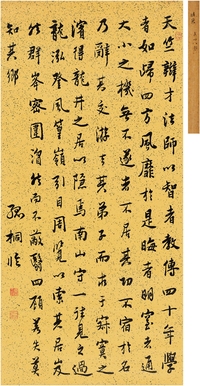 天竺辯才法師以智者教傳四十年學
者如歸四方風靡於是晦者明窒者通
大小之機無不遂者不居其功不宿於名
乃辭其交游去其弟子而求於寂寞之
濱得龍井之居以隱焉南山守一往見之過
龍泓登風篁嶺引目周覽以索其居岌
然群峯密圍溜然而不蔽翳四顧若失莫
知其鄉
桐臨